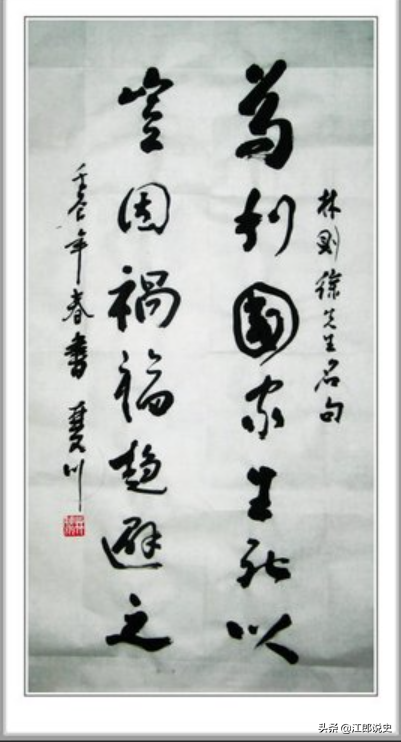 林则徐先生名句
苟利國家生死以
豈因禍福趋避之
壬辰年春書 川
头条 @江郎说史